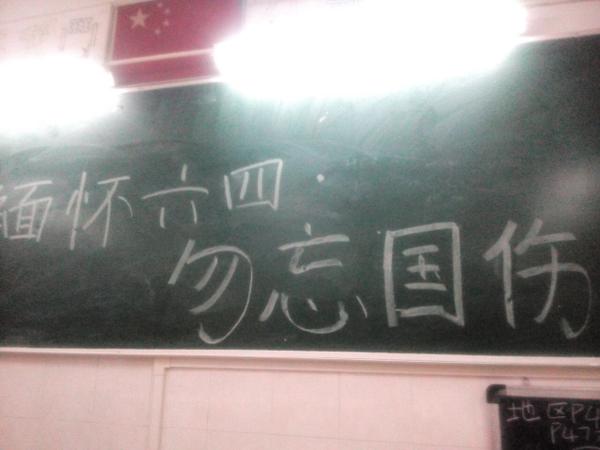 缅怀六四.
勿忘国伤
地区P4
P47